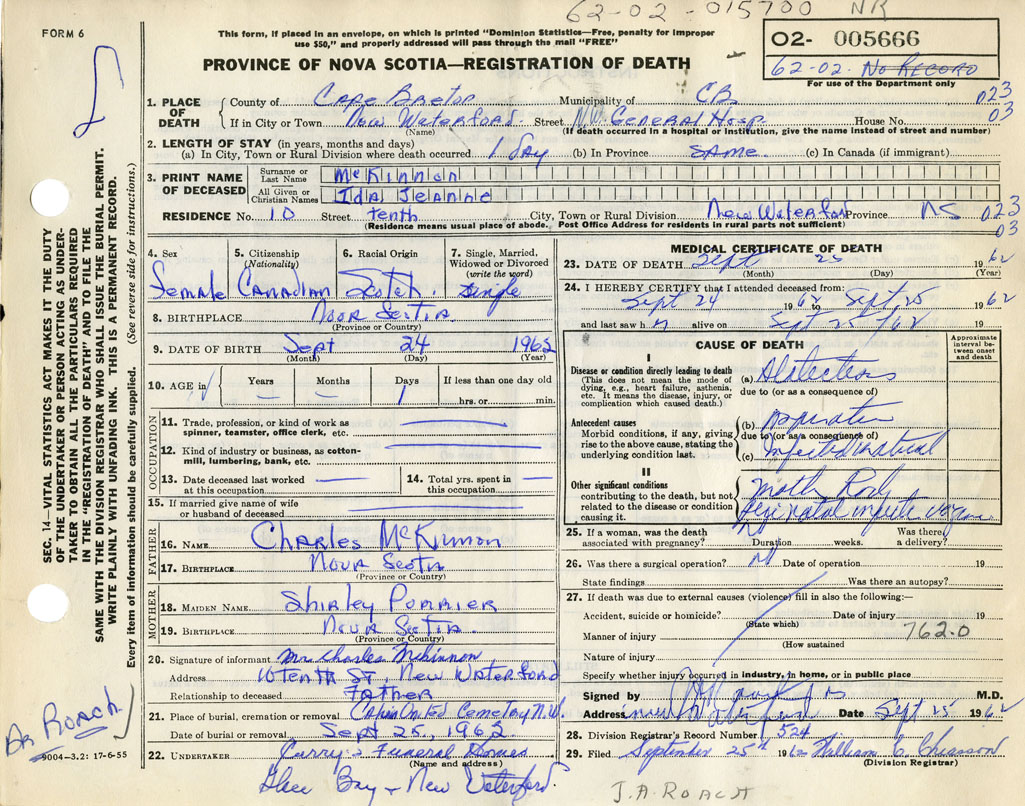 62-02-015700 NR
FORM 6
This form, if placed in an envelope, on which is printed "Dominion Statistics—Free, penalty for improper
use $50," and properly addressed will pass through the mail "FREE"
02- 005666
PROVINCE OF NOVA SCOTIA—REGISTRATION OF DEATH
62-02. No Record
For use of the Department only
1. PLACE OF DEATH County of Cape Breton Municipality of CB 023
If in City or Town New Waterford Street N.W. General Hosp House No. 03
(Name) (If death occurred in a hospital or institution, give the name instead of street and number)
2. LENGTH OF STAY (in years, months and days)
(a) In City, Town or Rural Division where death occurred 1 Day (b) In Province SAME. (c) In Canada (if immigrant)
3. PRINT NAME OF DECEASED Surname or Last Name McKinnon
All Given or Christian Names Ida Jeanne
RESIDENCE No. 10 Street tenth City, Town or Rural Division New Waterford Province NS 023
(Residence means usual place of abode. Post Office Address for residents in rural parts not sufficient) 03
4. Sex 5. Citizenship (Nationality) 6. Racial Origin 7. Single, Married, Widowed or Divorced (write the word)
Female Canadian Scotch Single
8. BIRTHPLACE Nova Scotia
(Province or Country)
9. DATE OF BIRTH Sept 24 1962
(Month) (Day) (Year)
10. AGE in Years Months Days If less than one day old
— — 1 hrs. or min.
OCCUPATION
11. Trade, profession, or kind of work as
spinner, teamster, office clerk, etc.
12. Kind of industry or business, as cotton-
mill, lumbering, bank, etc.
13. Date deceased last worked at this occupation 14. Total yrs. spent in this occupation
15. If married give name of wife
or husband of deceased
FATHER
16. NAME Charles McKinnon
17. BIRTHPLACE Nova Scotia
(Province or Country)
MOTHER
18. MAIDEN NAME Shirley Porrier
19. BIRTHPLACE Nova Scotia.
(Province or Country)
20. Signature of informant Mr Charles McKinnon
Address 10 Tenth St, New Waterford
Relationship to deceased Father
21. Place of burial, cremation or removal United Cemetery N.W.
Date of burial or removal Sept 25, 1962
22. UNDERTAKER Curry's Funeral Homes
(Name and address)
Glace Bay - New Waterford.
MEDICAL CERTIFICATE OF DEATH
23. DATE OF DEATH Sept 25 1962
(Month) (Day) (Year)
24. I HEREBY CERTIFY that I attended deceased from:
Sept 24 1962 to Sept 25 1962
and last saw h alive on Sept 25 /62 19
CAUSE OF DEATH
Approximate interval between onset and death
I
Disease or condition directly leading to death
(This does not mean the mode of
dying, e.g., heart failure, asthenia,
etc. It means the disease, injury, or
complication which caused death.)
(a) Atelectasis
due to (or as a consequence of)
Antecedent causes
Morbid conditions, if any, giving
rise to the above, stating the
underlying condition last.
(b)
due to (or as a consequence of)
(c)
II
Other significant conditions
contributing to the death, but not
related to the disease or condition
causing it.
25. If a woman, was the death
associated with pregnancy? Duration weeks. Was there a delivery?
26. Was there a surgical operation? Date of operation 19
State findings Was there an autopsy?
27. If death was due to external causes (violence) fill in also the following:—
Accident, suicide or homicide? (State which) Date of injury 19
Manner of injury 762.0
(How sustained)
Nature of injury
Specify whether injury occurred in industry, in home, or in public place
Signed by M.D.
Address New Waterford Date Sept 25 1962
28. Division Registrar's Record Number 524
29. Filed September 25th 1962 William C. Chiasson
(Division Registrar)
J.A. ROACH
SEC. 14—VITAL STATISTICS ACT MAKES IT THE DUTY
OF THE UNDERTAKER OR PERSON ACTING AS UNDER-
TAKER TO OBTAIN ALL THE PARTICULARS REQUIRED
IN THE "REGISTRATION OF DEATH" AND TO FILE THE
SAME WITH THE DIVISION REGISTRAR WHO SHALL ISSUE THE BURIAL PERMIT.
WRITE PLAINLY WITH UNFADING INK. THIS IS A PERMANENT RECORD.
Every item of information should be carefully supplied. (See reverse side for instructions.)
Dr Roach
9004—3.2: 17-6-55